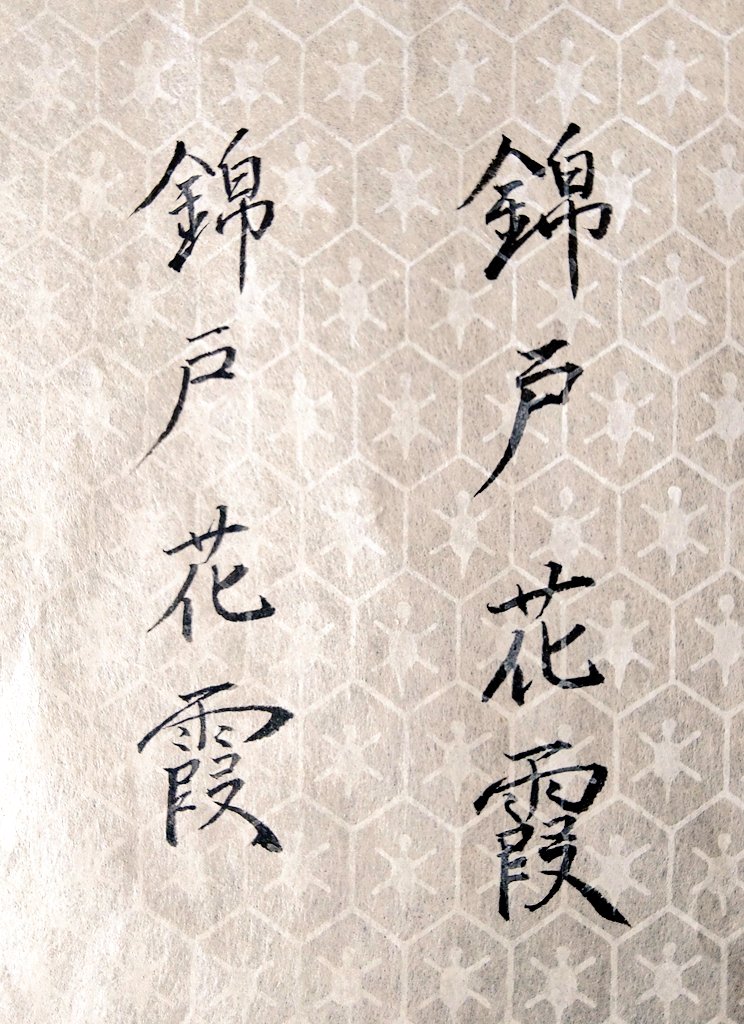 錦戸花霞
錦戸花霞